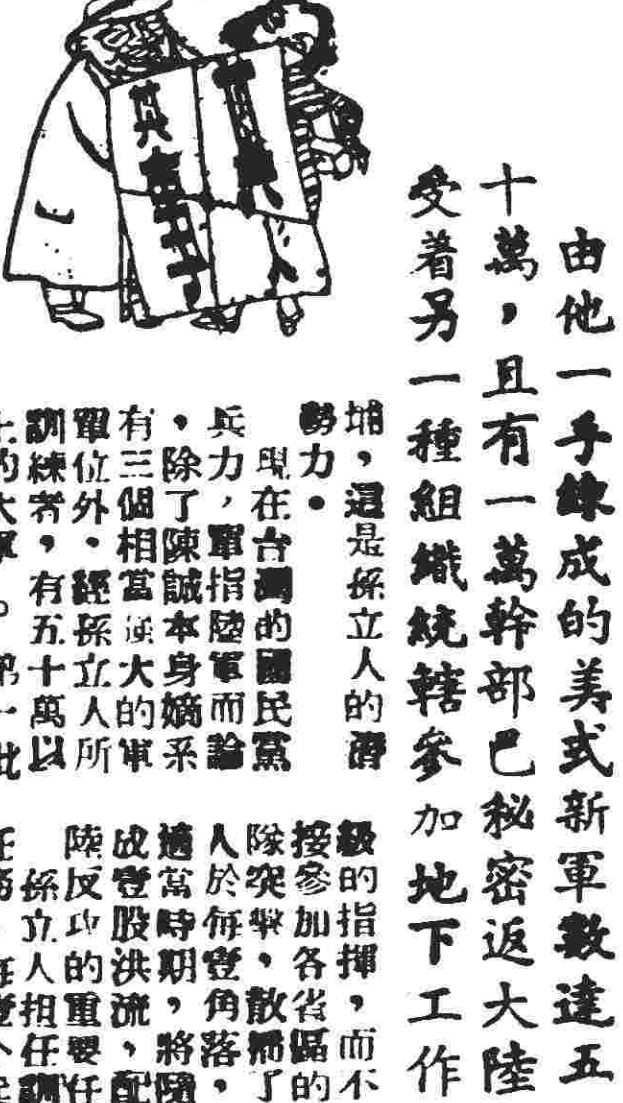 由他一手練成的美式新軍數達五
十萬，且有一萬幹部巴秘密返大陸
受着另一種組織統轄參加地下工作
埔，這是孫立人的潛
勢力。
現在台灣的國民黨
兵力，單指陸軍而論
，除了陳誠本身嫡系
有三個相當強大的軍
單位外。經孫立人所
訓練者，有五十萬以
級的指揮，而不
接參加各省區的
隊突擊，散播了
人於每壹角落，
適當時期，將隨
成壹股洪流，配
陸反攻的重要任
孫立人担任訓